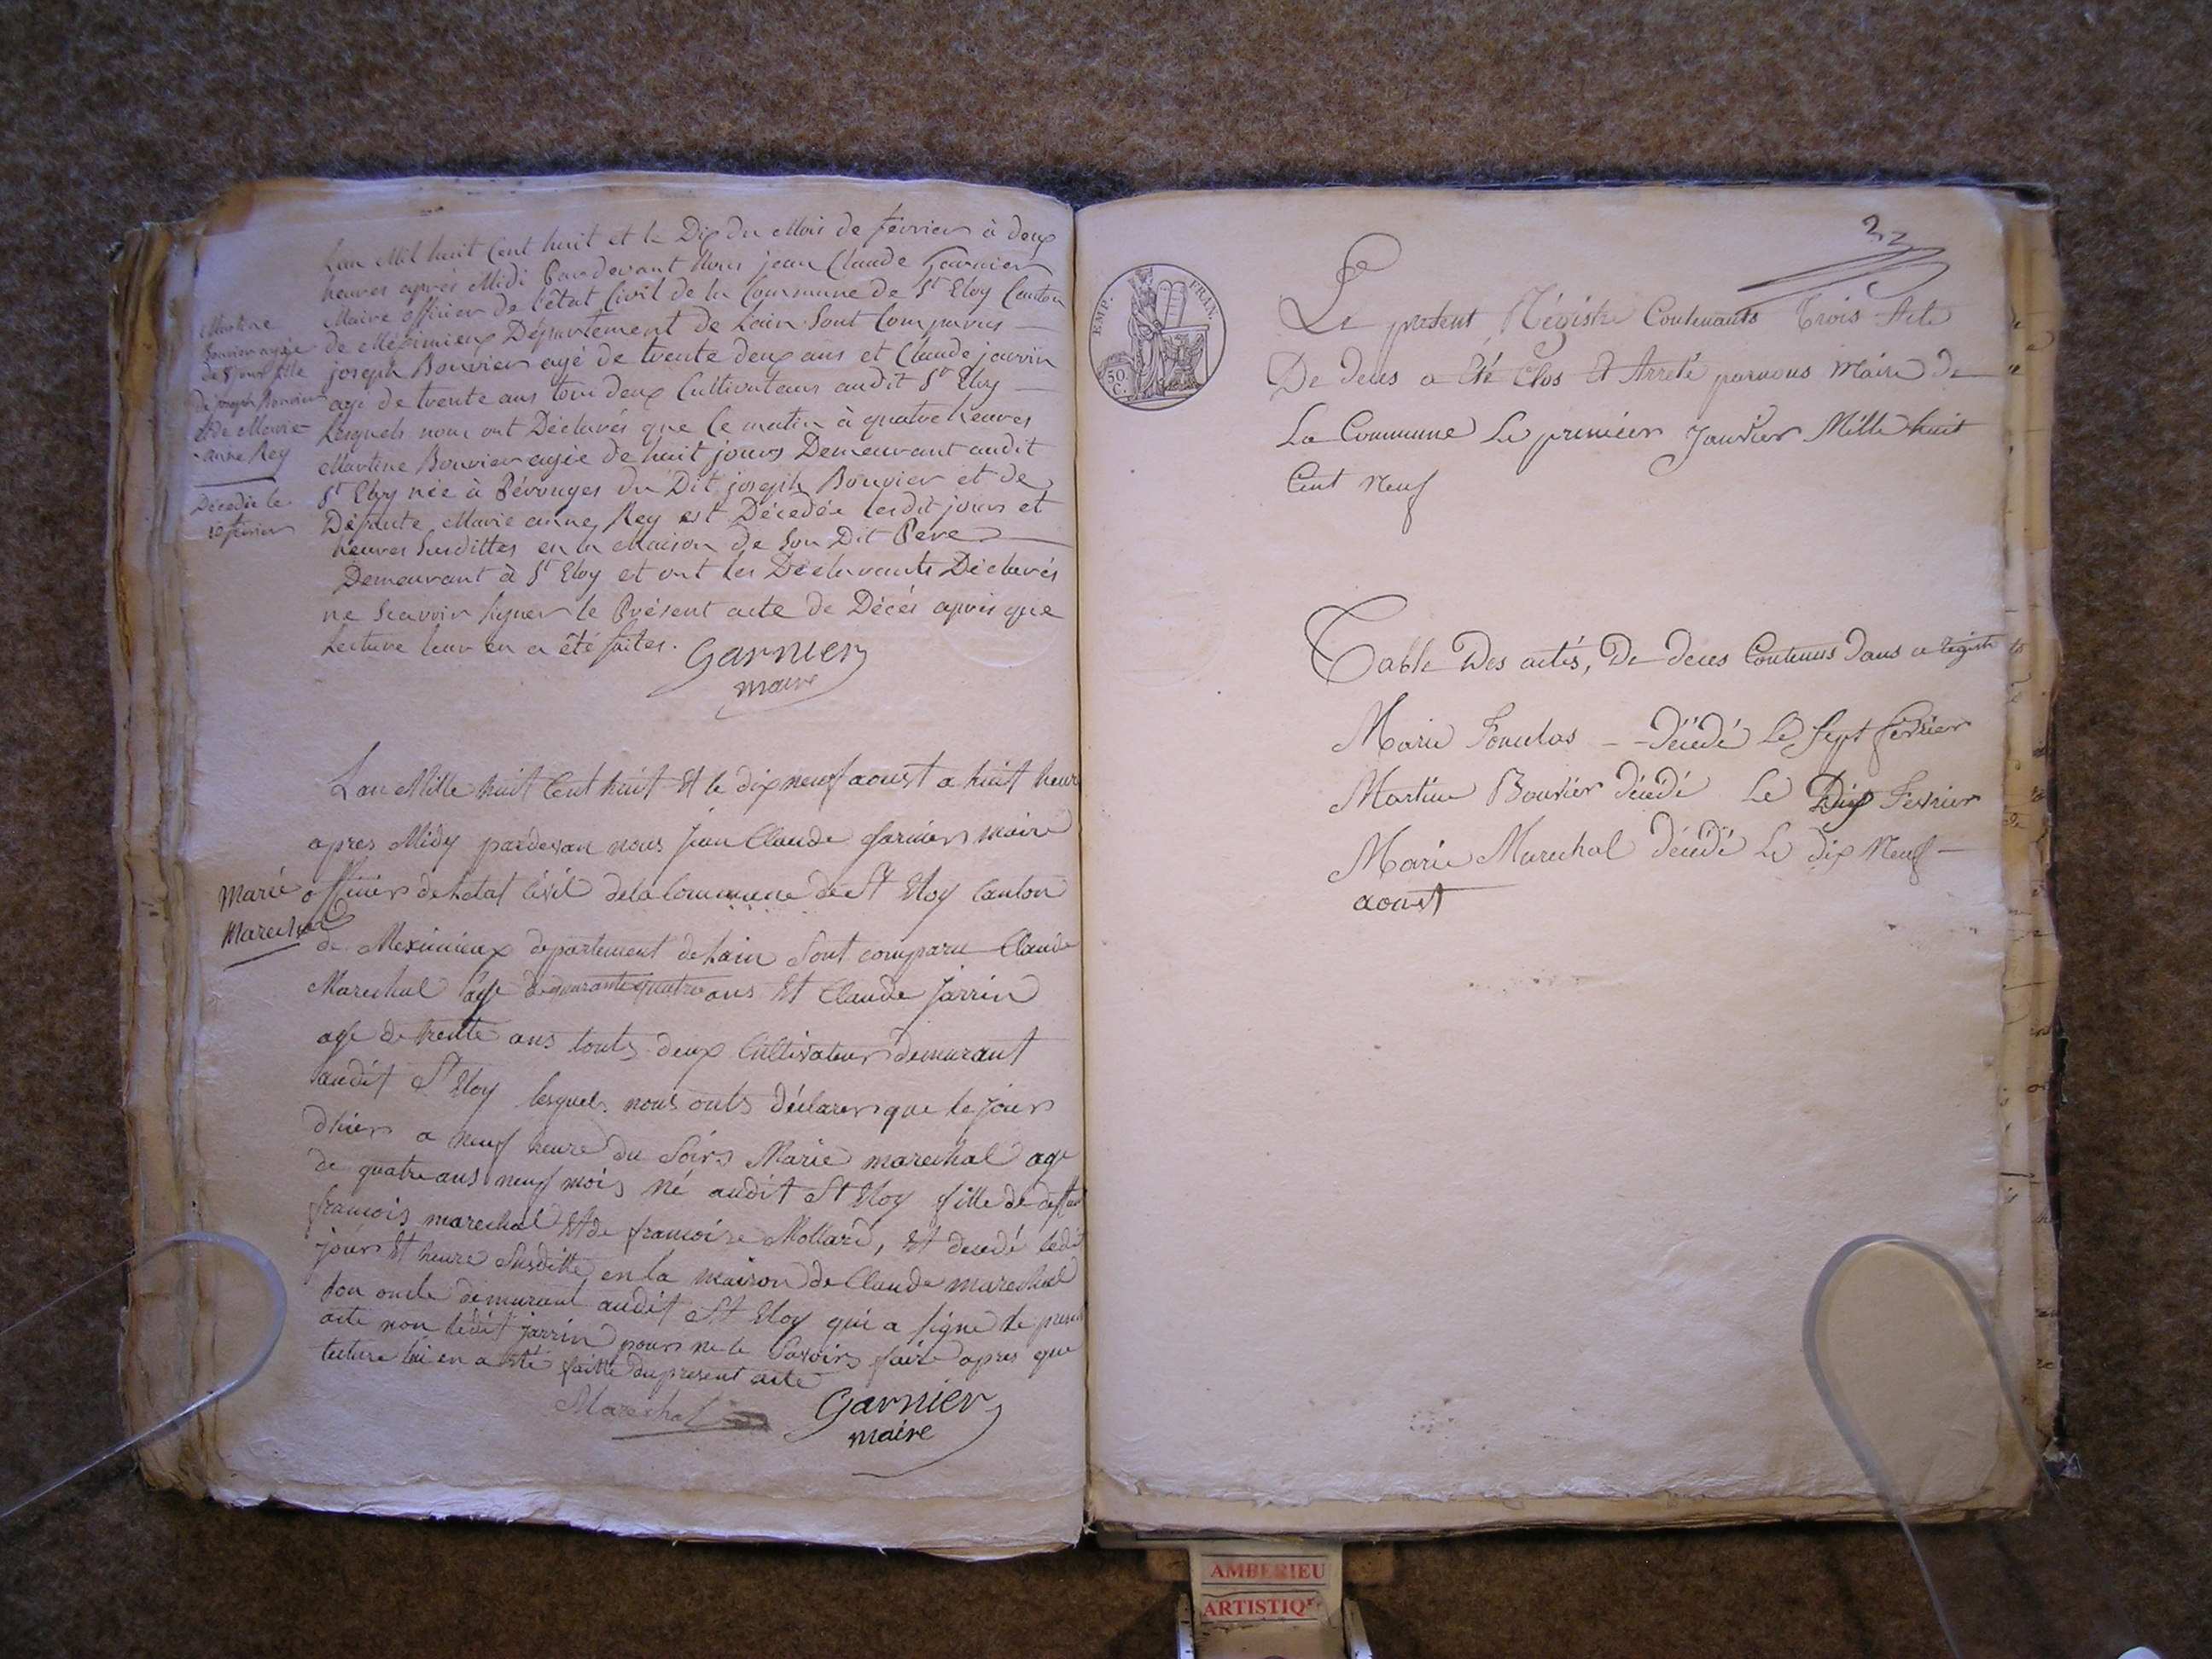 L'an Mil huit Cent huit et le Dix du Mois de février à deux
heures après Midi Pardevant Nous jean Claude Garnier
Maire officier de l'état Civil de la Commune de St Eloy Canton
de Méximieux Département de Lain Sont Comparus
joseph Bouvier agé de trente deux ans et Claude jarrin
agé de trente ans tous deux Cultivateurs audit St Eloy
Lesquels nous ont Déclarés que Ce matin à quatre heures
Martine Bouvier agée de huit jours Demeurant audit
St Eloy née à Pérouges du Dit joseph Bouvier et de
Défunte Marie anne Rey est Décedée lesdit jours et
heures Susdittes en la Maison de Son Dit Pere
Demeurant à St Eloy et ont les Déclarants Déclarés
ne Scavoir Signer le Présent acte de Décés après que
Lecture leur en a été faites.
Garnier
maire
Martine
Bouvier agée
de 8 jours fille
De joseph Bouvier
et de Marie
anne Rey
Décedée le
10 février
L'an Mille huit Cent huit Et le dix neuf aoust a huit heure
apres Midy pardevan nous Jean Claude Garnier maire
officier de letat Civil de la Commune de St Eloy Canton
de Meximieux departement de Lain Sont comparu Claude
Marechal age de quarante quatre ans Et Claude Jarrin
age de trente ans touts deux Cultivateur demurant
audit St Eloy lesquels nous onts déclarer que le jour
dhier a neuf heure du Soirs Marie marechal age
de quatre ans neuf mois né audit St Eloy fille de
francois marechal Et de francoise Mollard, Et decedé ledit
jours Et heure Susditte en la maison de Claude marechal
son oncle demurant audit St Eloy qui a signe le present
acte non ledit jarrin pours ne le Savoirs faire apres que
lecture lui en a été faitte du present acte
Marechal
Garnier
maire
Marie
Marechal
22
EMP. FRAN.
50 C.
Le present Régistre Contenants Trois Acte
De deces a Eté Clos Et Arreté parnous Maire De
La Commune Le premier Janvier Mille huit
Cent Neuf
Table Des actes, De deces Contenus Dans ce registre
Marie - - Décédé Le Sept fevrier
Martine Bouvier décédé Le Dix Fevrier
Marie Marechal décédé Le dix Neuf -
aoust
AMBERIEU
ARTISTIQUE